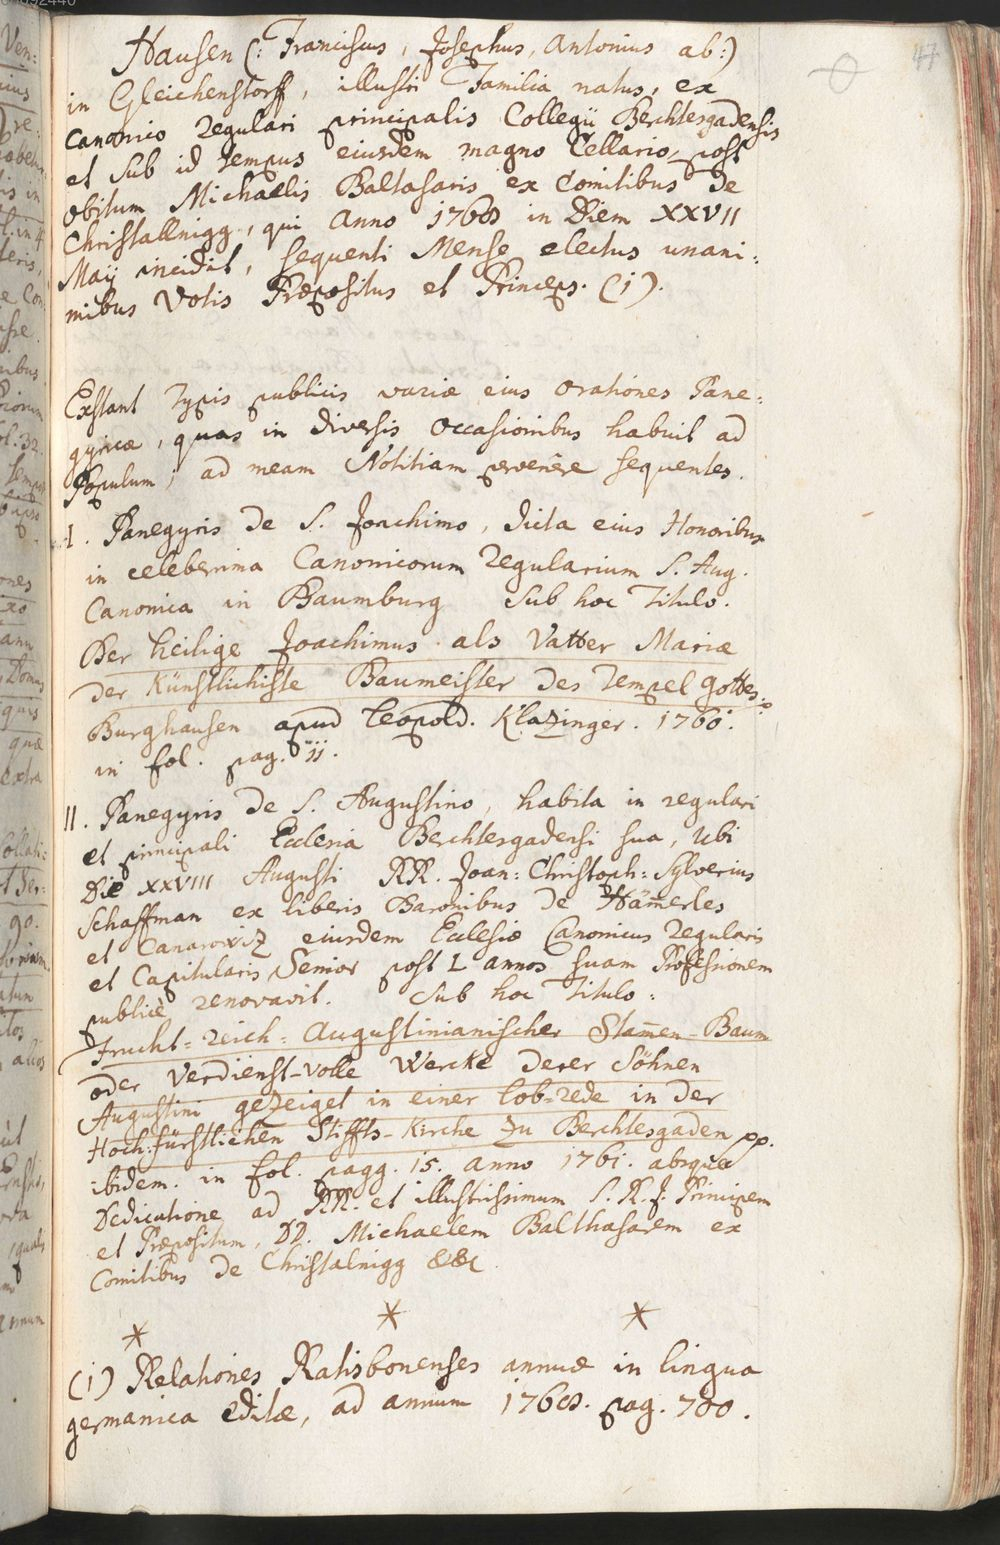 47
Hausen (: Franciscus, Josephus, Antonius ab:)
in Gleichenstorff, illustri Familia natus, ex
canonico regulari principalis Collegii Berchtesgadensis
et sub id tempus eiusdem magno Cellario, post
obitum Michaelis Baltasaris ex Comitibus de
Christallnigg, qui Anno 1768 in Diem XXVII
Maij incidit, sequenti Mense electus unani:
mibus Votis Præpositus et Princeps. (1).
Exstant Typis publicis variæ eius Orationes Pane:
gyricæ, quas in diversis Occasionibus habuit ad
Populum, ad meam Notitiam pervenêre sequentes.
I. Panegyris de S. Joachimo, dicta eius Honoribus
in celeberrima Canonicorum Regularium S. Aug.
Canonica in Baumburg sub hoc Titulo.
Der heilige Joachimus als Vatter Mariæ
der Künstlichiste Baumeister des Tempel Gottes.
Burghausen apud Leopold. Klazinger. 1760.
in fol. pag. 11.
II. Panegyris de S. Augustino, habita in regulari
et principali Ecclesia Berchtesgadensi sua, Ubi
Die XXVIII Augusti RR. Joan: Christoph: Sylverius
Schaffman ex liberis Baronibus de Ham̄erles
et Canarowiz eiusdem Ecclesiæ Canonicus Regularis
et Capitularis Senior post L annos suam Professionem
publicè renovavit. Sub hoc Titulo:
Frucht-reich-Augustinianischer Stam̄en-Baum
oder Verdienst-volle Wercke derer Söhnen
Augustini gezeiget in einer Lob-rede in der
Hoch:fürstlichen Stiffts-Kirche zu Berchtesgaden pp.
ibidem. in fol. pagg. 15. anno 1761. absque
Dedicatione ad RR. et illustrissimum S. R. J. Principem
et Præpositum, DD. Michaelem Balthasarem ex
Comitibus de Christalnigg &&c.
* * *
(1) Relationes Ratisbonenses annuæ in lingua
germanica editæ, ad annum 1768. pag. 700.